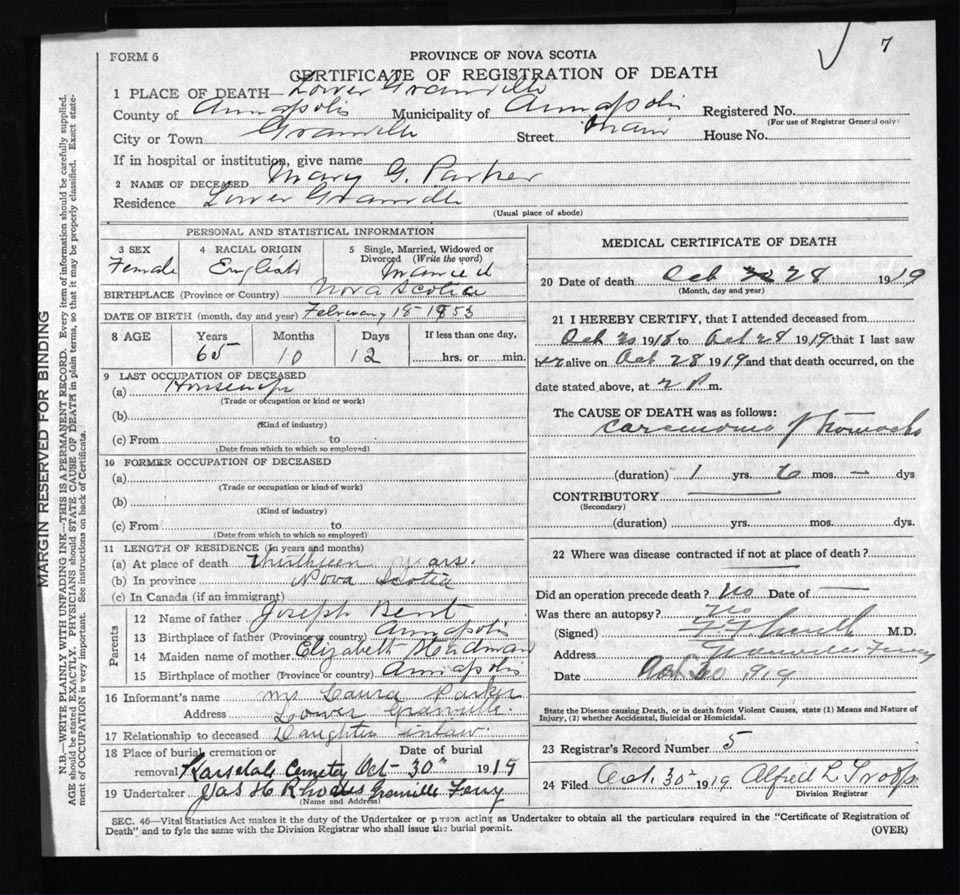 7
FORM 6
PROVINCE OF NOVA SCOTIA
CERTIFICATE OF REGISTRATION OF DEATH
1 PLACE OF DEATH— Lower Granville
County of Annapolis Municipality of Annapolis Registered No.
(For use of Registrar General only)
City or Town Granville Street Main House No.
If in hospital or institution, give name
2 NAME OF DECEASED Mary G. Parker
Residence Lower Granville
(Usual place of abode)
PERSONAL AND STATISTICAL INFORMATION
3 SEX 4 RACIAL ORIGIN 5 Single, Married, Widowed or
Divorced (Write the word)
Female English Married
BIRTHPLACE (Province or Country) Nova Scotia
DATE OF BIRTH (month, day and year) February 18-1853
8 AGE Years Months Days If less than one day,
65 10 12 hrs. or min.
9 LAST OCCUPATION OF DECEASED
(a) Housewife
(Trade or occupation or kind or work)
(b)
(Kind of industry)
(c) From to
(Date from which to which so employed)
10 FORMER OCCUPATION OF DECEASED
(a)
(Trade or occupation or kind of work)
(b)
(Kind of industry)
(c) From to
(Date from which to which so employed)
11 LENGTH OF RESIDENCE (In years and months)
(a) At place of death Thirthteen years.
(b) In province Nova Scotia
(c) In Canada (if an immigrant)
Parents
12 Name of father Joseph Bent
13 Birthplace of father (Province or country) Annapolis
14 Maiden name of mother Elizabeth
15 Birthplace of mother (Province or country) Annapolis
16 Informant's name Mrs Laura Parker
Address Lower Granville.
17 Relationship to deceased Daughter inlaw.
18 Place of burial, cremation or Date of burial
removal Karsdale Cemetry Oct- 30th 1919
19 Undertaker Jas H Rhodes Granville Ferry
(Name and Address)
MEDICAL CERTIFICATE OF DEATH
20 Date of death Oct 28 1919
(Month, day and year)
21 I HEREBY CERTIFY, that I attended deceased from
Oct 20 1918 to Oct 28 1919 that I last saw
her alive on Oct 28 1919 and that death occurred, on the
date stated above, at 2 P m.
The CAUSE OF DEATH was as follows:
Carcinoma of Stomach
(duration) 1 yrs. 6 mos. — dys
CONTRIBUTORY
(Secondary)
(duration) yrs. mos. dys.
22 Where was disease contracted if not at place of death?
Did an operation precede death? No Date of —
Was there an autopsy? No
(Signed) M.D.
Address Granville Ferry
Date Oct 30 1919
State the Disease causing Death, or in death from Violent Causes, state (1) Means and Nature of
Injury, (2) whether Accidental, Suicidal or Homicidal.
23 Registrar's Record Number 5
24 Filed Oct. 30th 1919 Alfred L Troop
Division Registrar
SEC. 46—Vital Statistics Act makes it the duty of the Undertaker or person acting as Undertaker to obtain all the particulars required in the "Certificate of Registration of
Death" and to fyle the same with the Division Registrar who shall issue the burial permit.
(OVER)
MARGIN RESERVED FOR BINDING
N.B.—WRITE PLAINLY WITH UNFADING INK—THIS IS A PERMANENT RECORD. Every item of information should be carefully supplied.
AGE should be stated EXACTLY. PHYSICIANS should STATE CAUSE OF DEATH in plain terms, so that it may be properly classified. Exact state-
ment of OCCUPATION is very important. See instructions on back of Certificate.